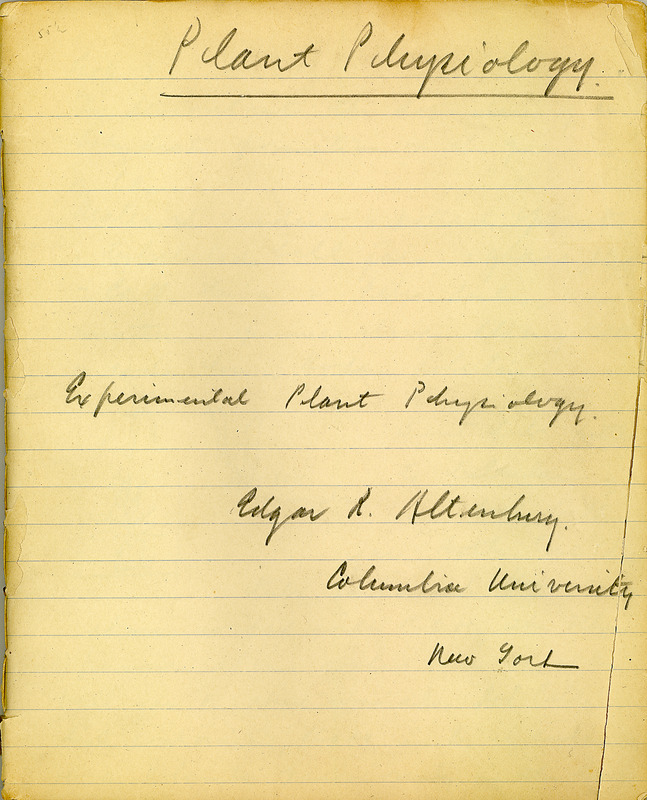 Plant Physiology.
Experimental Plant Physiology.
Edgar R. Altenburg.
Columbia University
New York